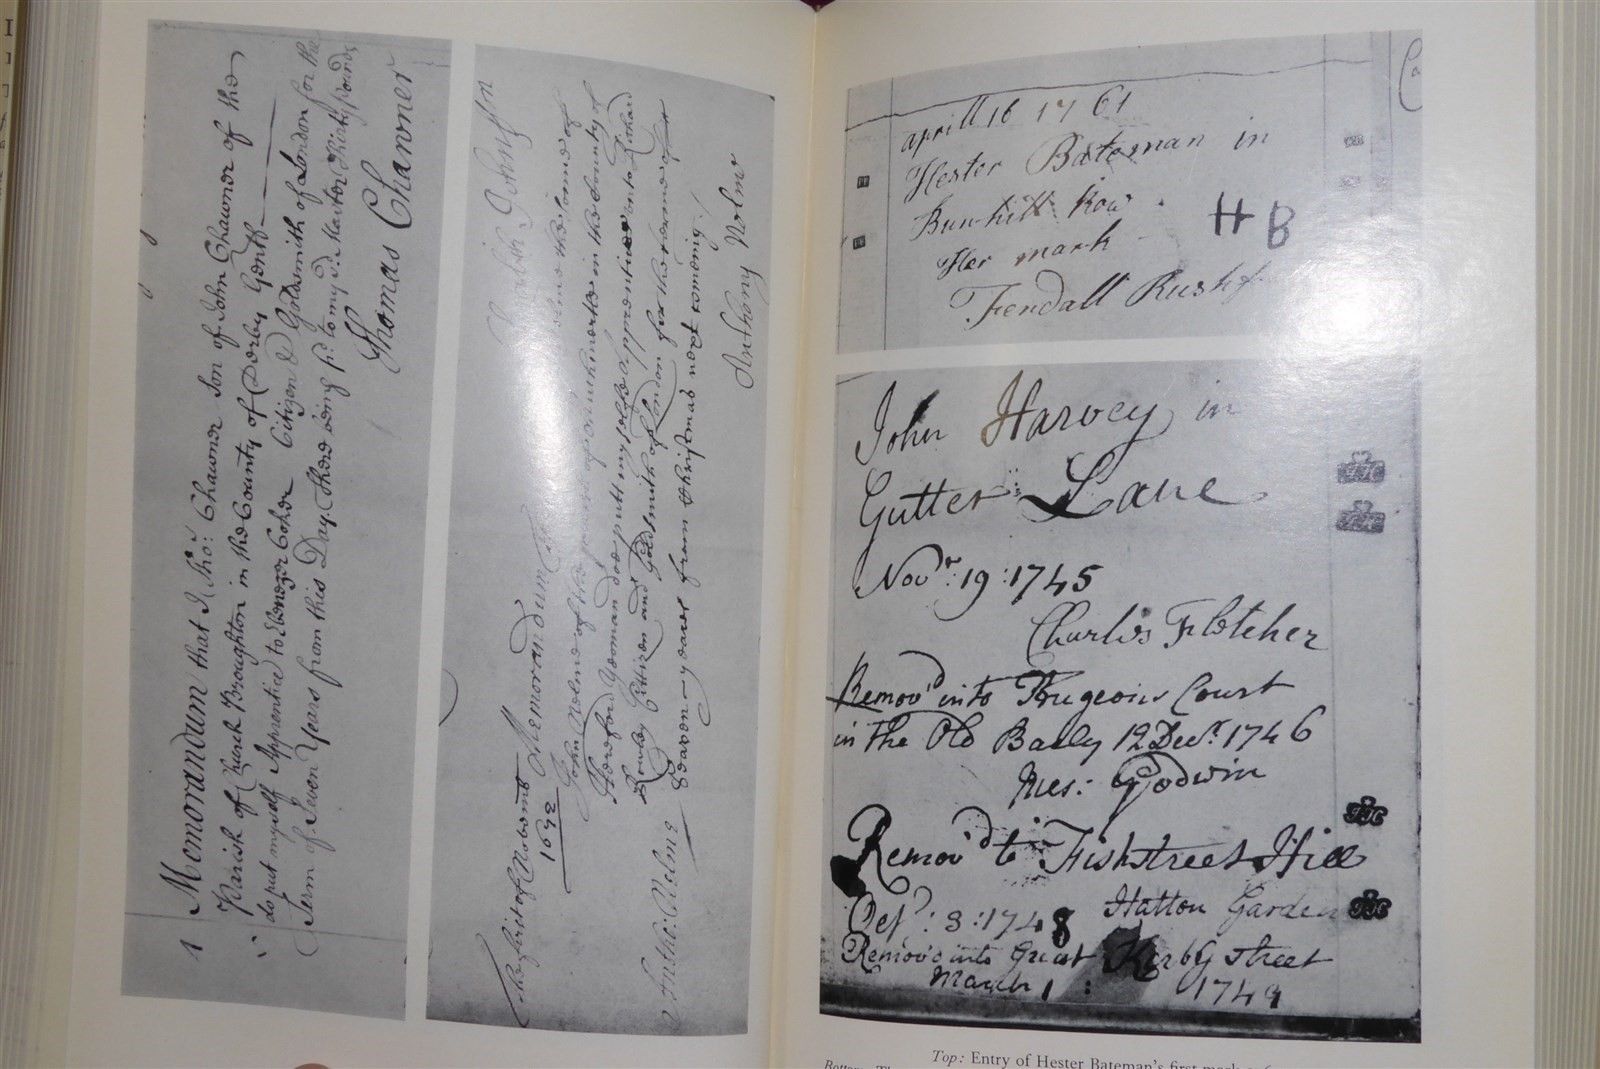 1 Memorandum that I Tho: Chawner Son of John Chawner of the
Parish of Church Broughton in the County of Derby Gent
do put myself Apprentice to Ebenezer Coker Citizen & Goldsmith of London for the
Term of Seven Years from this Day. there being pd to my sd Master Thirty pounds
Thomas Chawner
The first of
1692
Memorandum
John Nelme of the
Hereford Yeoman doe putt my selfe apprentice unto Richard
Rowley Cittizen and Goldsmith of London for the terme of
Seaven yeares from Christmas next comeing
Anthony Nelme
Antho: Nelme
aprill 16 1761
Hester Bateman in
Bunhill Row
Her mark
H B
Fendall Rushf
John Harvey in
Gutter Lane
Novr: 19: 1745
Charles Fletcher
Remov'd into Court
in the Old Baily 12 Decr. 1746
Mes: Godwin
Remov'd to Fishstreet Hill
3: 1748
Hatton Garden
Remov'd into Great Kirby Street
March 1: 1749
Top: Entry of Hester Bateman's first mark